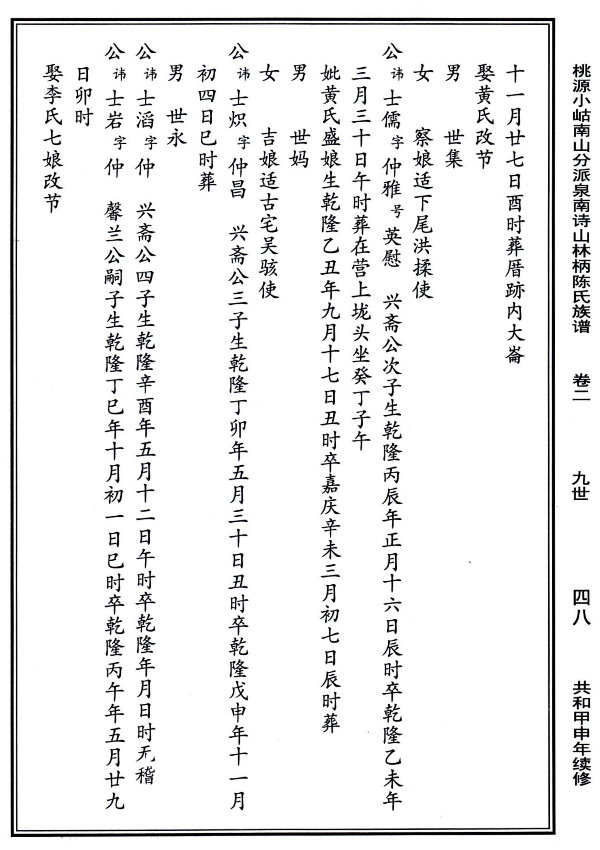 桃源小岵南山分派泉南诗山林柄陈氏族谱 卷二 九世 四八 共和甲申年续修
十一月廿七日酉时葬厝跡内大崙
娶黄氏改节
男 世集
女 察娘适下尾洪揉使
公讳士儒字仲雅号英慰 兴斋公次子生乾隆丙辰年正月十六日辰时卒乾隆乙未年
三月三十日午时葬在营上垅头坐癸丁子午
妣黄氏盛娘生乾隆乙丑年九月十七日丑时卒嘉庆辛未三月初七日辰时葬
男 世妈
女 吉娘适古宅吴骇使
公讳士炽字仲昌 兴斋公三子生乾隆丁卯年五月三十日丑时卒乾隆戊申年十一月
初四日巳时葬
男 世永
公讳士滔字仲 兴斋公四子生乾隆辛酉年五月十二日午时卒乾隆年月日时无稽
公讳士岩字仲 馨兰公嗣子生乾隆丁巳年十月初一日巳时卒乾隆丙午年五月廿九
日卯时
娶李氏七娘改节